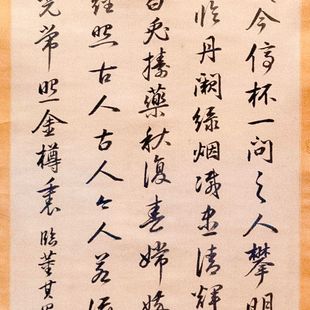 今停杯一問之人攀明
臨丹闕綠烟滅盡清輝
白兔擣藥秋復春嫦娥
經照古人古人今人若流
光常照金樽裏臨董其昌